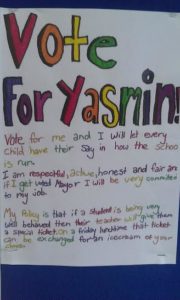 Vote
For Yasmin!
Vote for me and I will let every
child have their say in how the school
is run.
I am respectful, active, honest and fair and
if I get voted Mayor I will be very commited
to my job.
My Policy is that if a student is being very
well behaved then their teacher will give them
a special ticket on a friday lunchtime that ticket
can be exchanged for an icecream of your
choice.